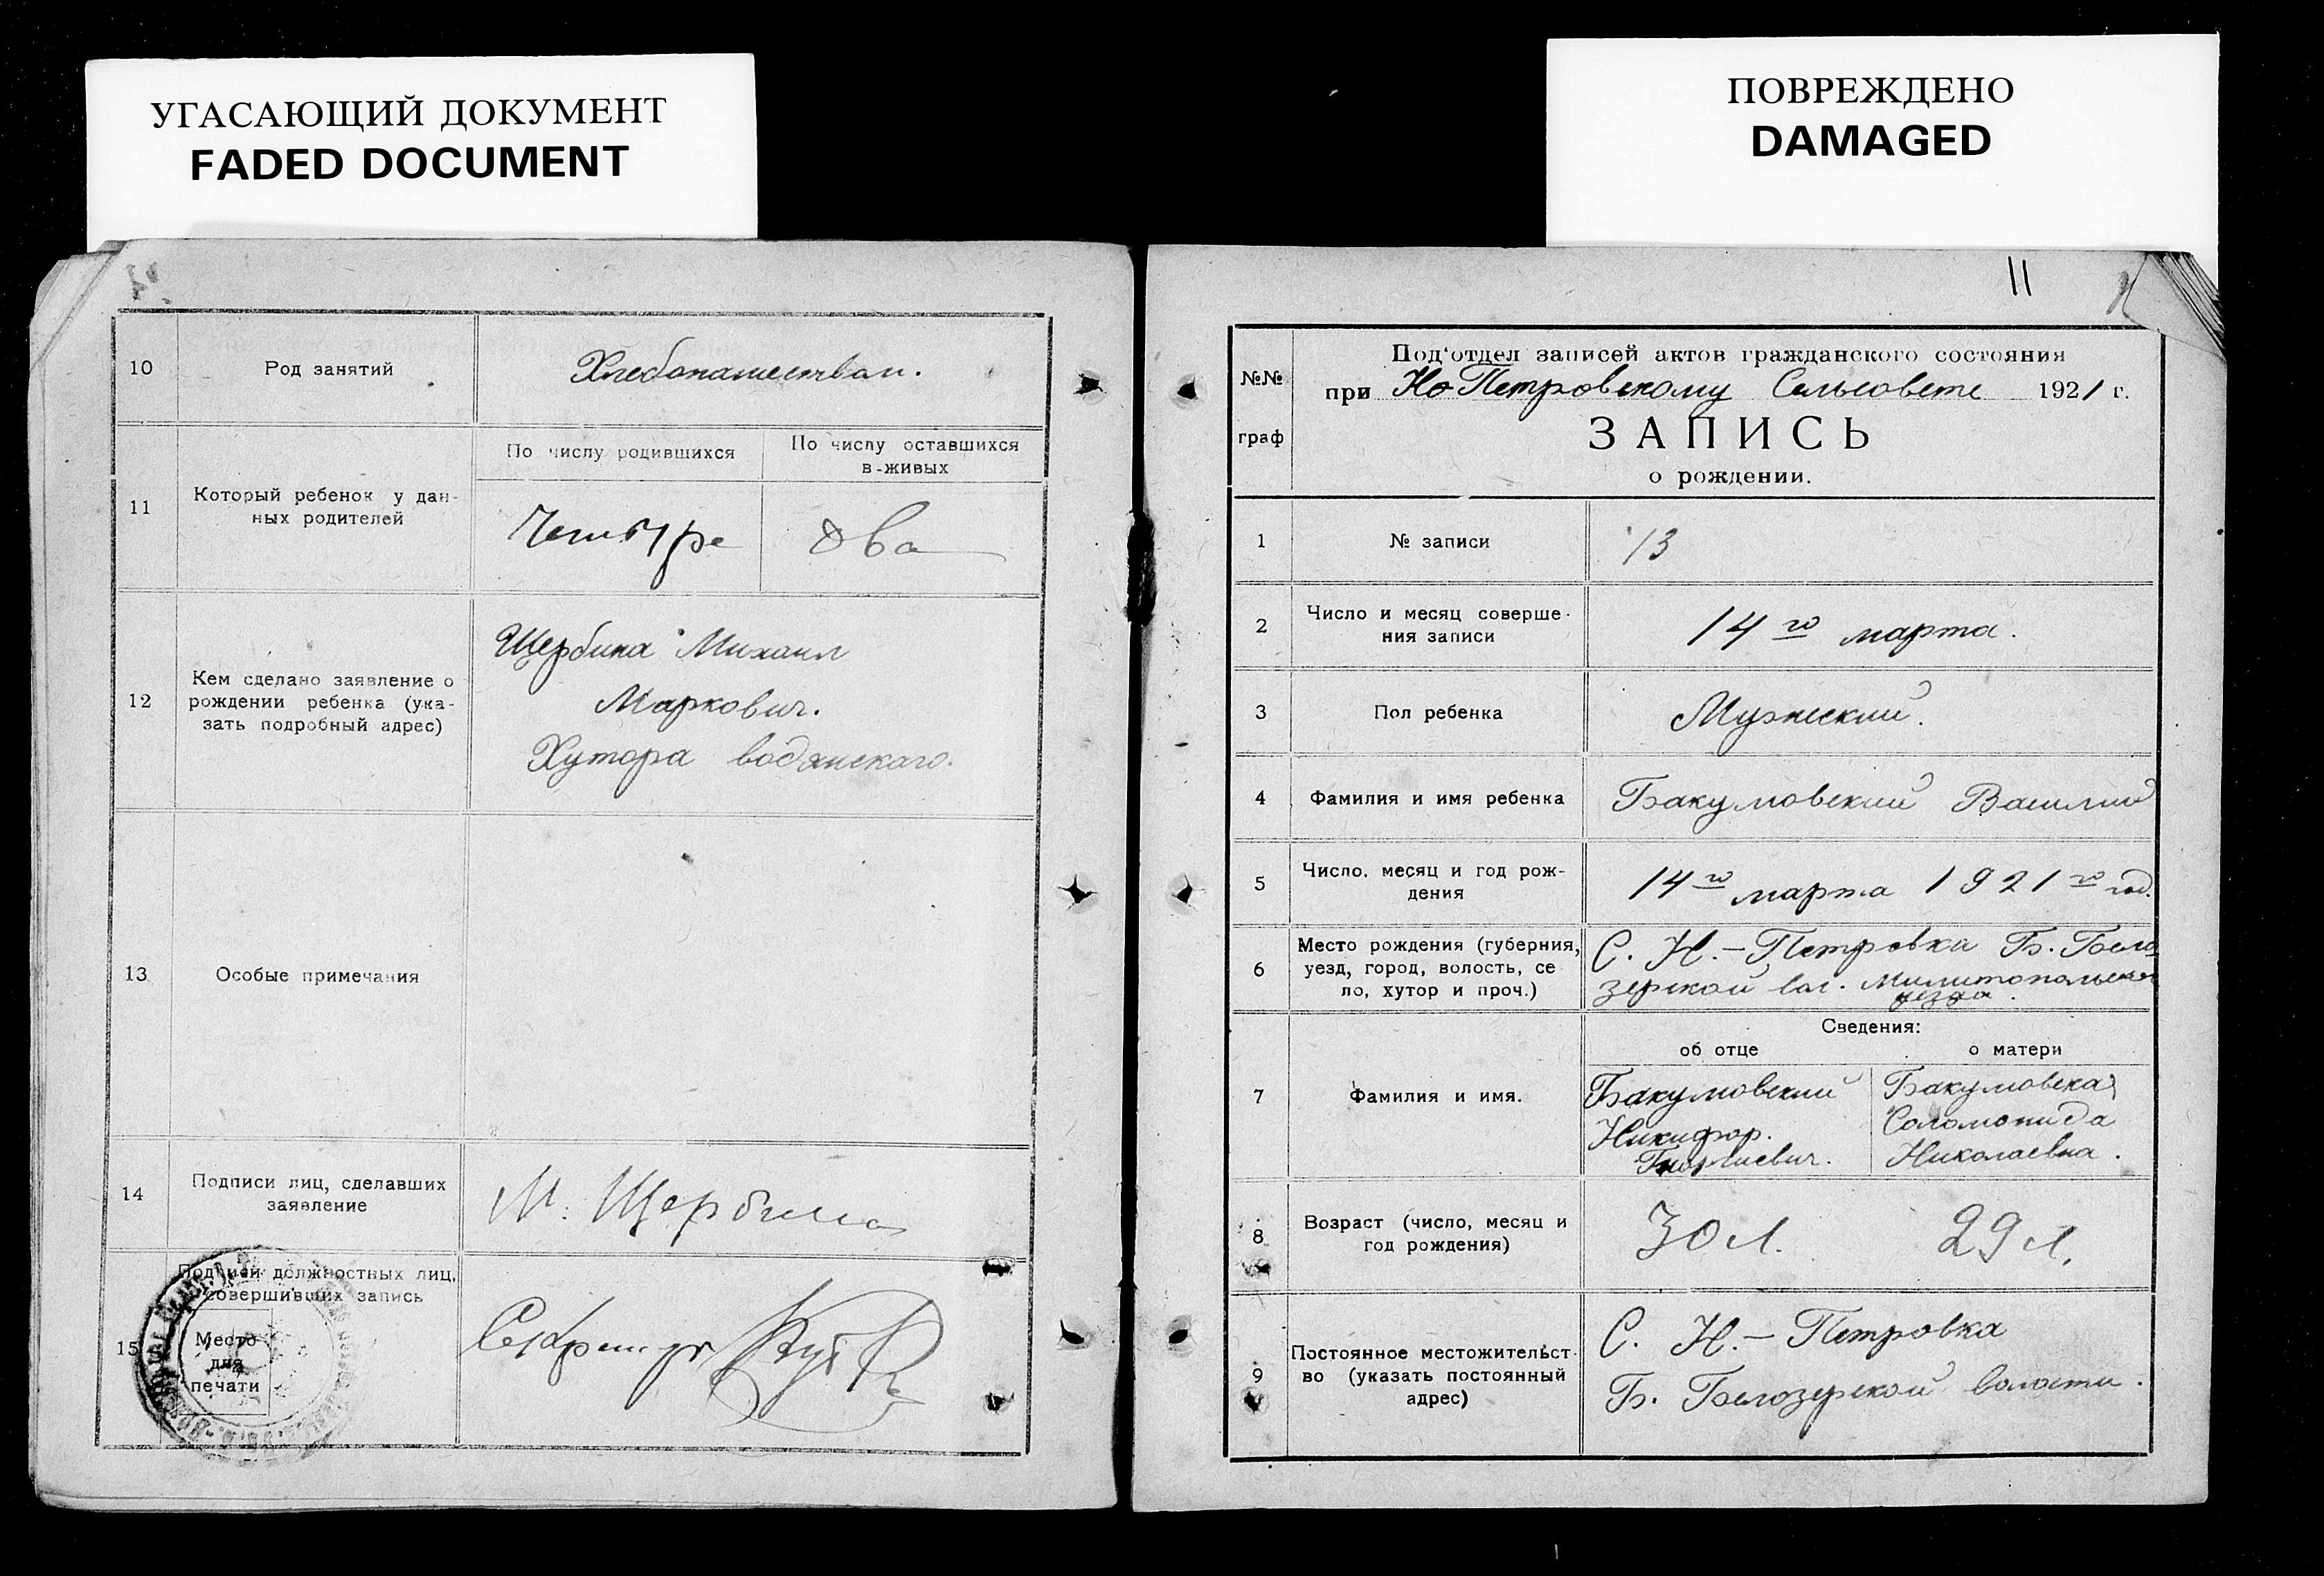 УГАСАЮЩИЙ ДОКУМЕНТ
FADED DOCUMENT
ПОВРЕЖДЕНО
DAMAGED
10
Род занятий
Хлебопашеством.
11
Который ребенок у дан-
ных родителей
По числу родившихся
По числу оставшихся
в-живых
Четыре
два
12
Кем сделано заявление о
рождении ребенка (ука-
зать подробный адрес)
Щербина Михаил
Маркович.
Хутора водянскаго.
13
Особые примечания
14
Подписи лиц, сделавших
заявление
М. Щербина
15
Подписи должностных лиц,
совершивших запись
Место
для
печати
Секретарь
11
№№
граф
Под'отдел записей актов гражданского состояния
при Но-Петровскому Сельсовете 1921 г.
ЗАПИСЬ
о рождении.
1
№ записи
13
2
Число и месяц соверше-
ния записи
14го марта.
3
Пол ребенка
Мужеский.
4
Фамилия и имя ребенка
Бакумовский Василий
5
Число, месяц и год рож-
дения
14го марта 1921го год.
6
Место рождения (губерния,
уезд, город, волость, се
ло, хутор и проч.)
С. Н.-Петровка Б. Бело
зерской вол. Милитопольскаго
уезда.
Сведения:
об отце
о матери
7
Фамилия и имя.
Бакумовский
Никифор.
Георгиевич.
Бакумовская
Соломонида
Николаевна.
8
Возраст (число, месяц и
год рождения)
30 л.
29 л.
9
Постоянное местожительст-
во (указать постоянный
адрес)
С. Н.-Петровка
Б. Белозерской волости.